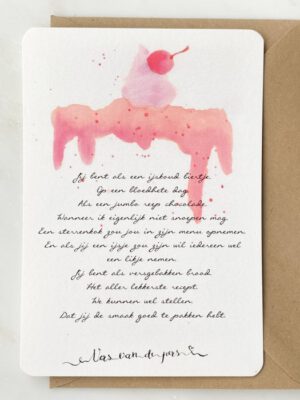 Jij bent als een ijskoud biertje.
Op een bloedhete dag.
Als een jumbo reep chocolade.
Wanneer ik eigenlijk niet snoepen mag.
Een sterrenkok zou jou in zijn menu opnemen.
En als jij een ijsje zou zijn wil iedereen wel
een likje nemen.
Jij bent als versgebakken brood.
Het aller lekkerste recept.
We kunnen wel stellen.
Dat jij de smaak goed te pakken hebt.
Vers van de pers